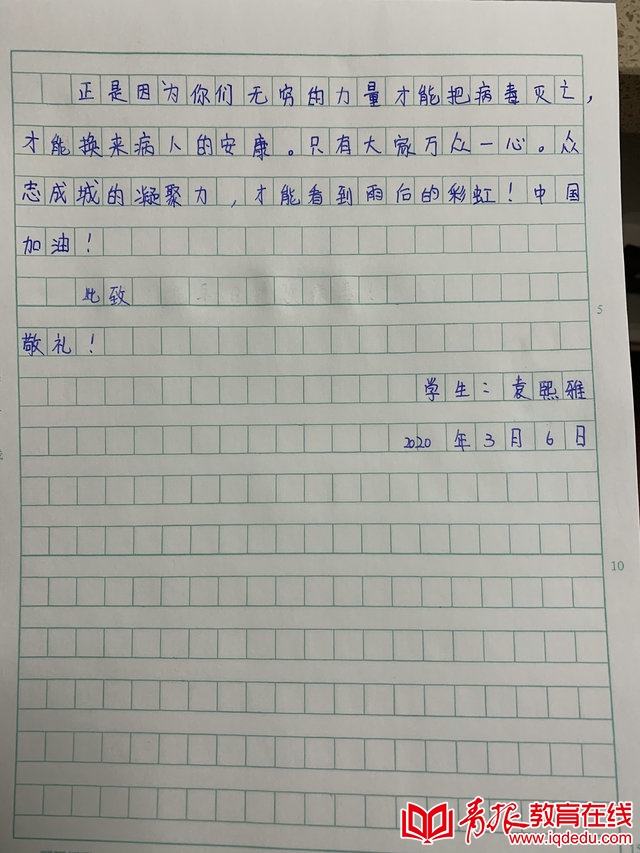 正是因为你们无穷的力量才能把病毒灭亡，
才能换来病人的安康。只有大家万众一心。众
志成城的凝聚力，才能看到雨后的彩虹！中国
加油！
此致
敬礼！
学生：袁熙雅
2020年3月6日
5
10
青报教育在线
www.iqdedu.com